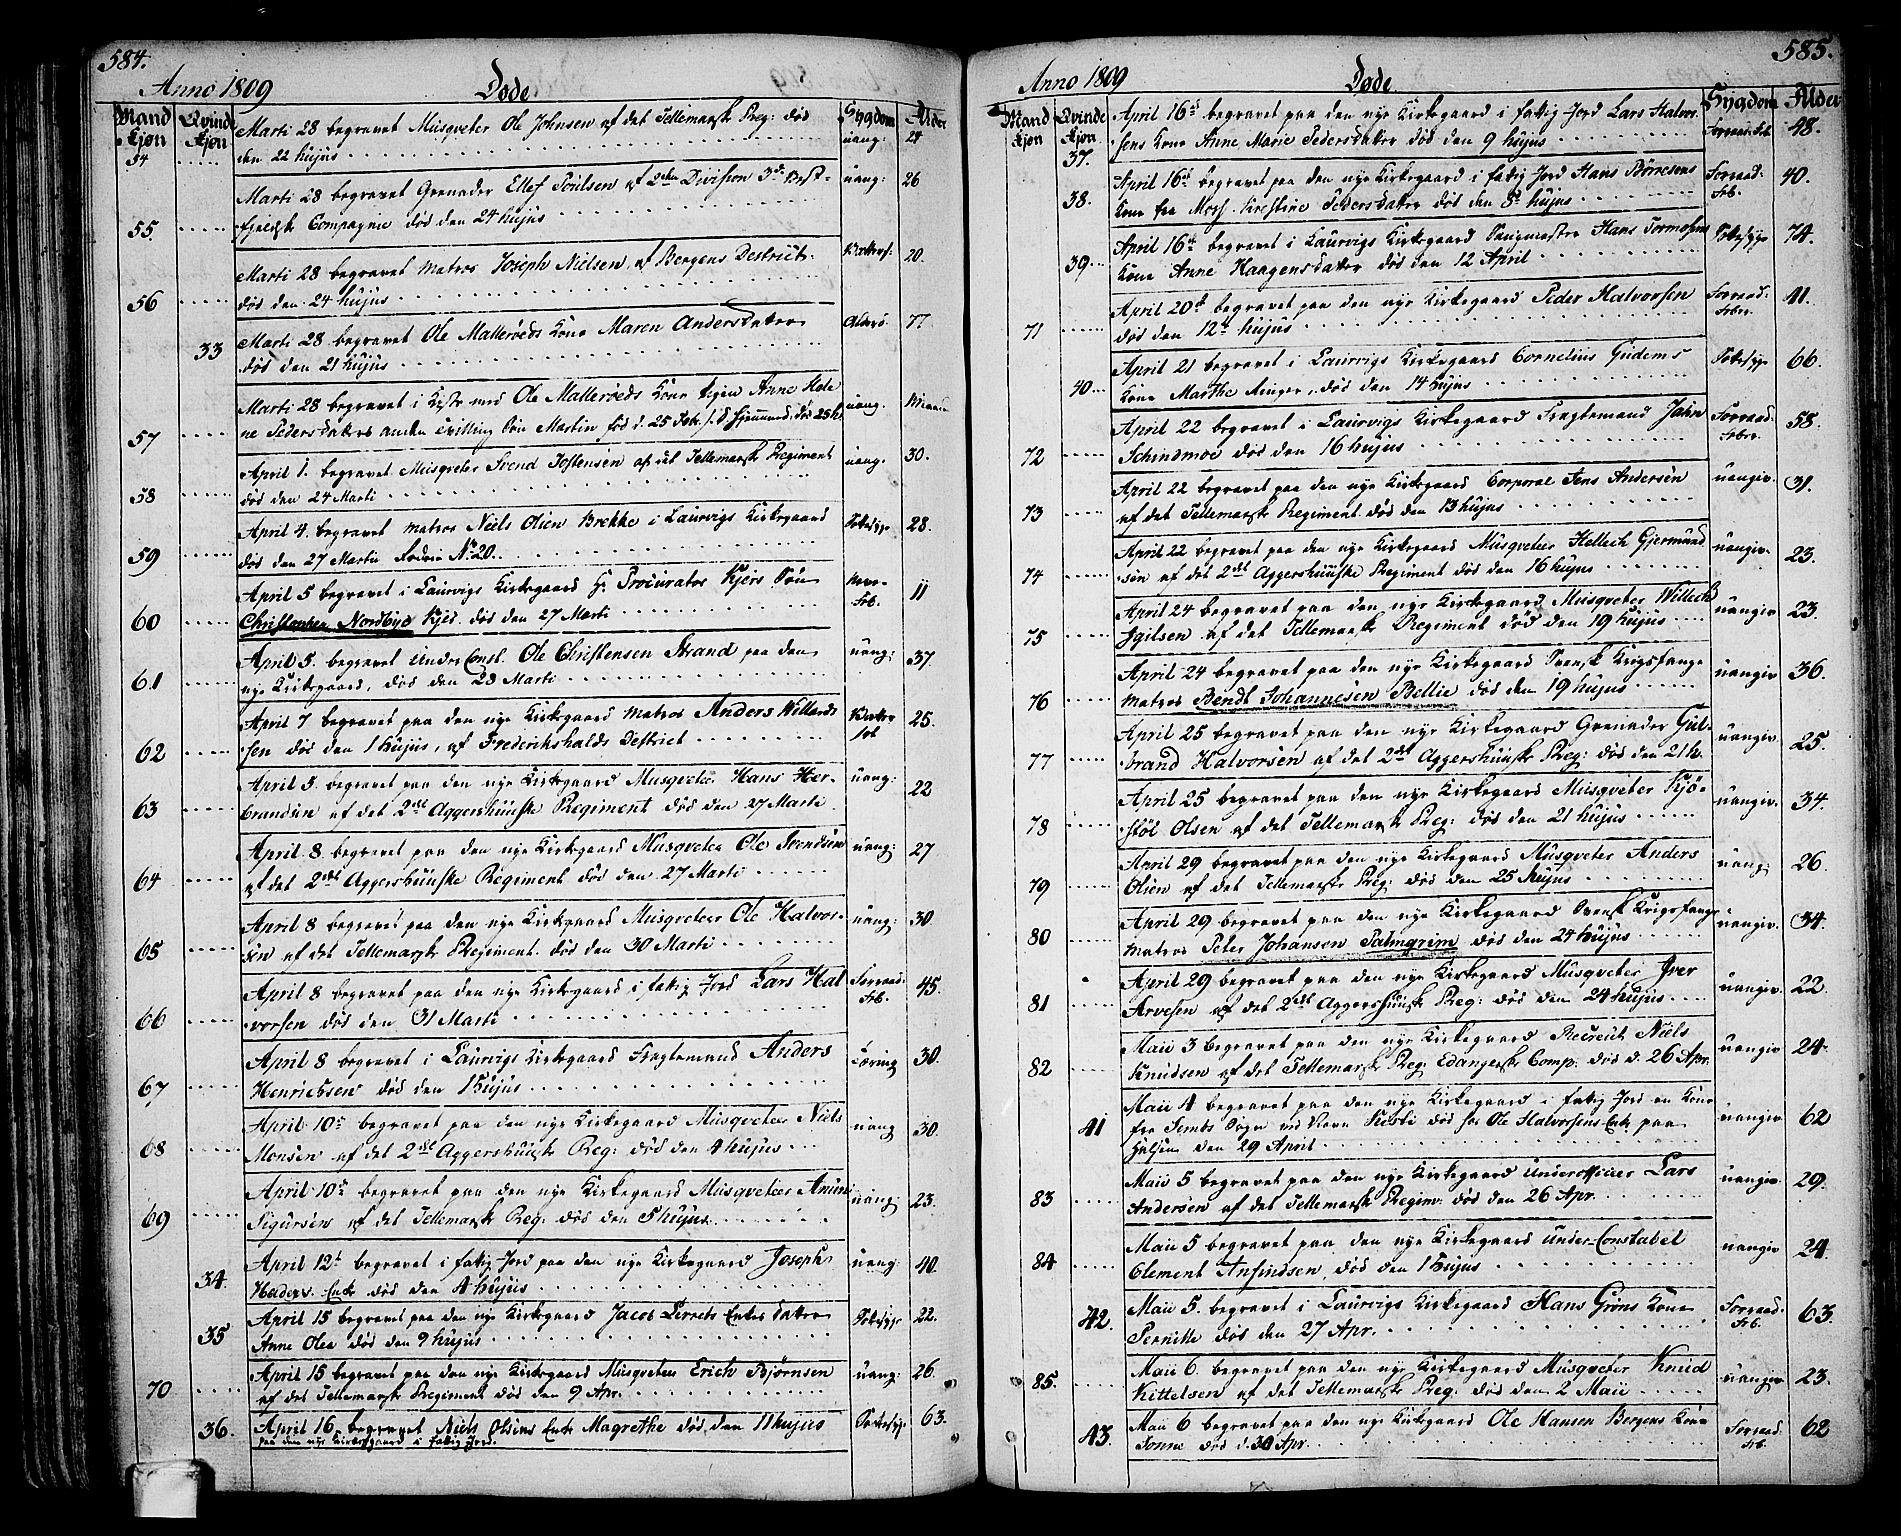 584.
Anno 1809 Døde
Mand Qvinde Sygdom Alder
kjøn kjøn
54 Marti 28 begravet Musqveter Ole Johnsen af det Tellemarsk Reg: død uang: 28
den 22 hujus
Marti 28 begravet Grenader Ellef Poulsen af 2den Division 3de uang: 26
55. fjeldsk Compagnie død den 24 hujus
Marti 28 begravet Matros Joseph Nielsen, af Bergens Destrict 20.
56 død den 24 hujus
33 Marti 28 begravet Ole Malleröeds Kone Maren Andersdatter 77
død den 21 hujus
Marti 28 begravet i Kiste med Ole Malleröeds Kone Pigen Anne Hele uang.
57 ne Pedersdatters anden Tvilling Søn Martin fød d. 25 død 25 h.
April 1. begravet Musqveter Svend Tostensen af det Tellemarsk Regiment uang. 30.
58 død den 24 Marti
April 4 begravet Matros Niels Olsen Brekke i Laurvigs Kirkegaard 28.
59 død den 27 Martii No 20.
April 5 begravet i Laurvigs Kirkegaard Hr Procurator Kjers Søn 11
60 Christopher Nordbye Kjer død den 27 Marti Frb.
April 5. begravet Under Const. Ole Christensen Strand paa den uang: 37.
61 nye Kirkegaard, død den 28 Marti
April 7 begravet paa den nye Kirkegaard Matros Anders Willards 25.
62 sen død den 1 hujus, af Frederikshalds Destrict
April 5. begravet paa den nye Kirkegaard Musqveter Hans Her- uang: 22
63 brandsen af det 2det Aggershuuske Regiment død den 27 Marti
April 8 begravet paa den nye Kirkegaard Musqveter Ole Svendsen uang: 27
64 af det 2det Aggershuuske Regiment død den 27 Marti
April 8 begravet paa den nye Kirkegaard Musqveter Ole Halvor- uang: 30
65 sen af det Tellemarsk Regiment. død den 30 Marti
April 8 begravet paa den nye Kirkegaard i fattig Jord Lars Hal Forraad- 45.
66 vorsen død den 31 Marti Frb.
April 8 begravet i Laurvigs Kirkegaard Fragtemand Anders Tæring 30.
67 Henrichsen død den 1 hujus
April 10de begravet paa den nye Kirkegaard Musqveter Niels uang 30.
68 Monsen af det 2det Aggershuusk Reg: død den 4 hujus
April 10de begravet paa den nye Kirkegaard Musqveter Amun uang 23.
69 Sigursen af det Tellemarsk Reg: død den 5 hujus
April 12t begravet i fattig Jord paa den nye Kirkegaard Joseph uang: 40.
34 Enke død den 4 hujus
April 15 begravet paa den nye Kirkegaard Jacob Enkes Datter 22.
35 Anne Olea død den 9 hujus
April 15 begravet paa den nye Kirkegaard Musqveter Erich Bjørnsen uang: 26.
70 af det Tellemarsk Regiment død den 9 Apr.
36. April 16 begravet Niels Olsens Enke Magrethe død den 11 hujus 63.
paa den nye Kirkegaard i fattig Jord.
585.
Anno 1809 Døde
Mand Qvinde Sygdom Alder
kjøn kjøn
April 16d begravet paa den nye Kirkegaard i fattig Jord Lars Halvor- Forraad. Frb. 48.
37. sens Kone Anne Marie Pedersdatter død den 9 hujus
April 16d begravet paa den nye Kirkegaard i fattig Jord Hans Börresens Forraad- 40.
38. Kone fra Moss Kirstine Pedersdatter død den 8d hujus Frb.
April 16d begravet i Laurvigs Kirkegaard Hans Tormosens 74.
39 Kone Anne Haagensdatter død den 12 April
April 20d begravet paa den nye Kirkegaard Peder Halvorsen Forraad- 41.
71 død den 12t hujus Frb.
April 21 begravet i Laurvigs Kirkegaard Cornelius Gudems 66.
40 Kone Marthe Ringer, død den 14 hujus
April 22 begravet i Laurvigs Kirkegaard Fragtemand John Forraad- 58.
72 Schindmoe død den 16 hujus Frb.
April 22 begravet paa den nye Kirkegaard Corporal Jens Andersen uangiv. 31.
73 af det Tellemarsk Regiment. død den 13 hujus
April 22 begravet paa den nye Kirkegaard Musqveter Hellech Gjermund uangiv. 23.
74 sen af det 2det Aggershuuske Regiment død den 16 hujus
April 24 begravet paa den nye Kirkegaard Musqveter Willech uangiv 23.
75 Igilsen af det Tellemarsk Regiment død den 19 hujus
April 24 begravet paa den nye Kirkegaard Svensk Krigsfange uangiv 36.
76 Matros Bendt Johannesen Bellie død den 19 hujus
April 25 begravet paa den nye Kirkegaard Grenader Gul- uangiv. 25.
77 brand Halvorsen af det 2det Aggershuusk Reg: død den 21 h.
April 25 begravet paa den nye Kirkegaard Musqveter Kjø- uangiv. 34.
78 stöl Olsen af det Tellemarsk Reg: død den 21 hujus
April 29 begravet paa den nye Kirkegaard Musqveter Anders uang: 26.
79 Olsen af det Tellemarsk Reg: død den 25 hujus
April 29 begravet paa den nye Kirkegaard Svensk Krigsfange uangiv. 34.
80 Matros Peter Johansen Palmgrim død den 24 hujus
April 29 begravet paa den nye Kirkegaard Musqveter Iver uangiv. 22.
81 Arvesen af det 2det Aggershuusk Reg: død den 24 hujus
Maii 3 begravet paa den nye Kirkegaard Recreut Niels uangiv 24.
82 Knudsen af det Tellemarsk Reg: Edangersk Comp: død d. 26 Apr.
Maii 4 begravet paa den nye Kirkegaard i fattig Jord en Kone uangiv. 62
41 fra Sembs Sogn ved Navn død hos Ole Halvorsens Enke paa
den 29 April
Maii 5 begravet paa den nye Kirkegaard Underofficer Lars uangiv. 29.
83 Andersen af det Tellemarsk Regim: død den 26 Apr.
Maii 5 begravet paa den nye Kirkegaard Under-Constabel uangiv 24.
84 Clement Anfindsen, død den 1 hujus
Maii 5. begravet i Laurvigs Kirkegaard Hans Gröns Kone Forraad- 63.
42. Pernille død den 27 Apr. Frb.
Maii 6 begravet paa den nye Kirkegaard Musqveter Knud uangiv 23.
85. Kittelsen af det Tellemarsk Reg: død den 2 Maii
Maii 6 begravet paa den nye Kirkegaard Ole Hansen Bergens Kone Forraad- 62
43. Tonne død d. 30 Apr. Frb.